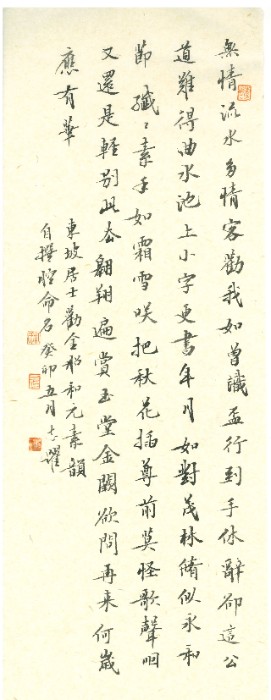 無情流水多情客勸我如曾識盃行到手休辭卻這公
道難得曲水池上小字更書年月如對茂林脩似永和
節纖纖素手如霜雪咲把秋花插尊前莫怪歌聲咽
又還是輕別此去翱翔遍賞玉堂金闕欲問再来何歲
應有華
東坡居士勸金船和元素韻
自撰腔命名癸卯五月